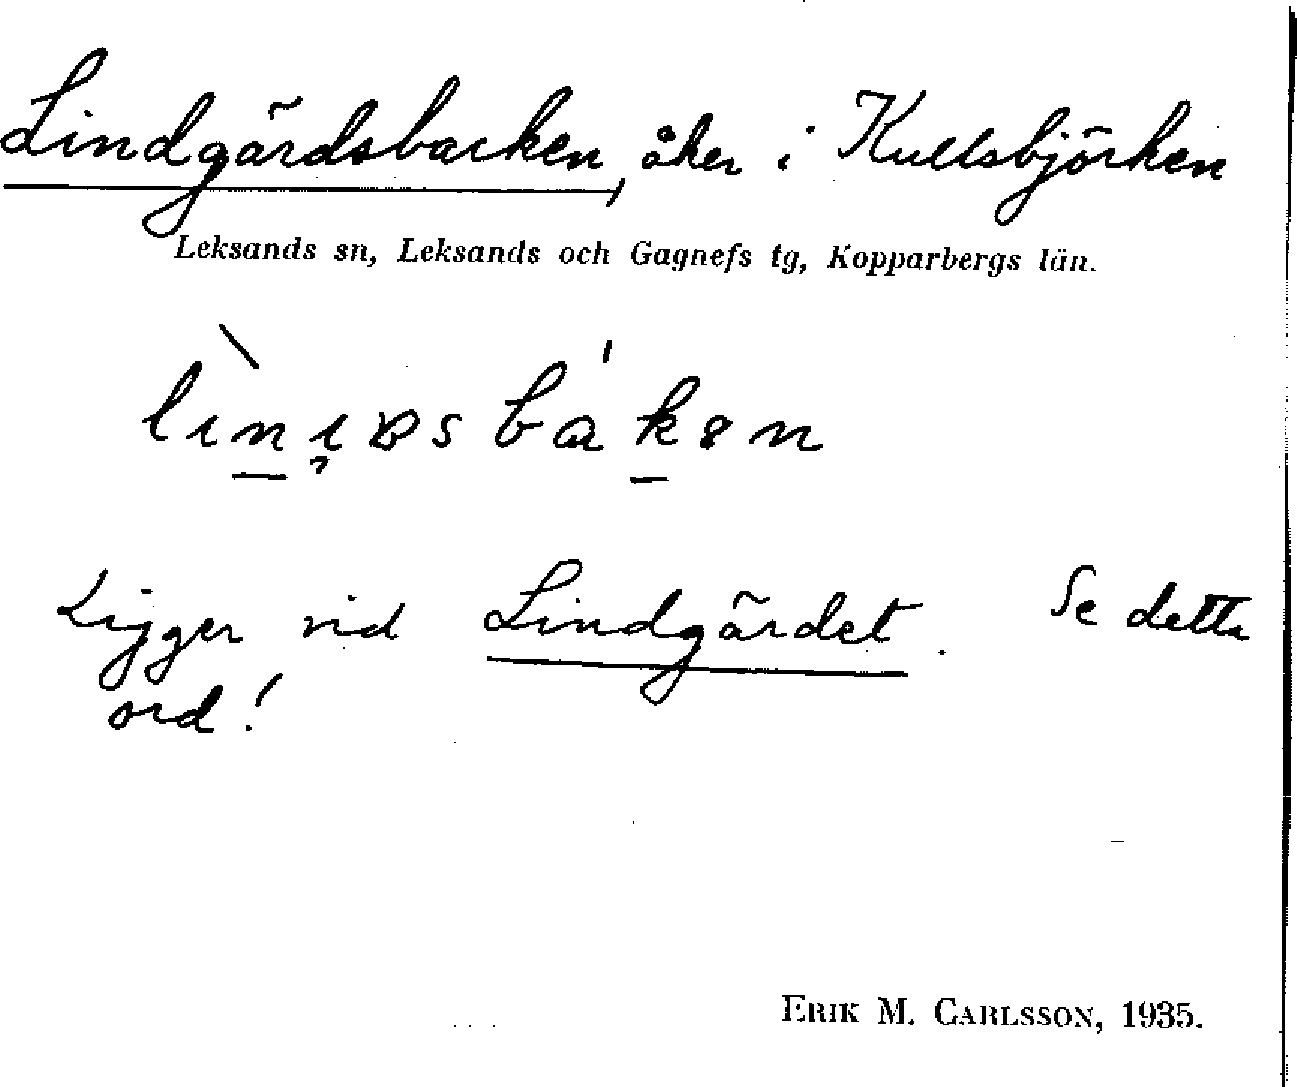 Lindgärdsbacken, åker i Kullsbjörken
Leksands sn, Leksands och Gagnefs tg, Kopparbergs län.
Ligger vid Lindgärdet. Se detta
ord!
ERIK M. CARLSSON, 1935.